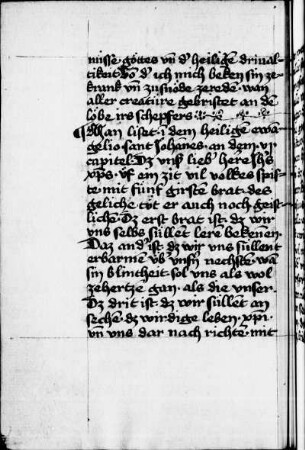 nusse. gottes vn̄ dˢ heiligē drival-
tikeit vō dˢ ich mich bekēn sin ze
krank vn̄ zu snöde ze redē. wan
aller creature gebristet an dē
lobe irs schepfers
¶ Man liset ī dem heilige ewā
gelio sant Johanes. an dem vi
capitel. Dz vnsˢ liebˢ here ihs
xp̄s. vf ein zit vil volkes spis-
te. mit fúnf girstē brat. des
geliche tᵒt er auch noch geist-
liche. Dz erst brat ist dz wir
vns selbe súllēt lerē bekenē.
Daz andˢ ist dz wir vns súllent
erbarmē vbˢ vnsˢn nechstē wā
sin blintheit sol vns als wol
ze hertze gan. als die vnser.
Dz drit ist. dz wir súllēt an
sechē. dz wirdige lebēn. xp̄i.
vn̄ vns dar nach richtē. mit